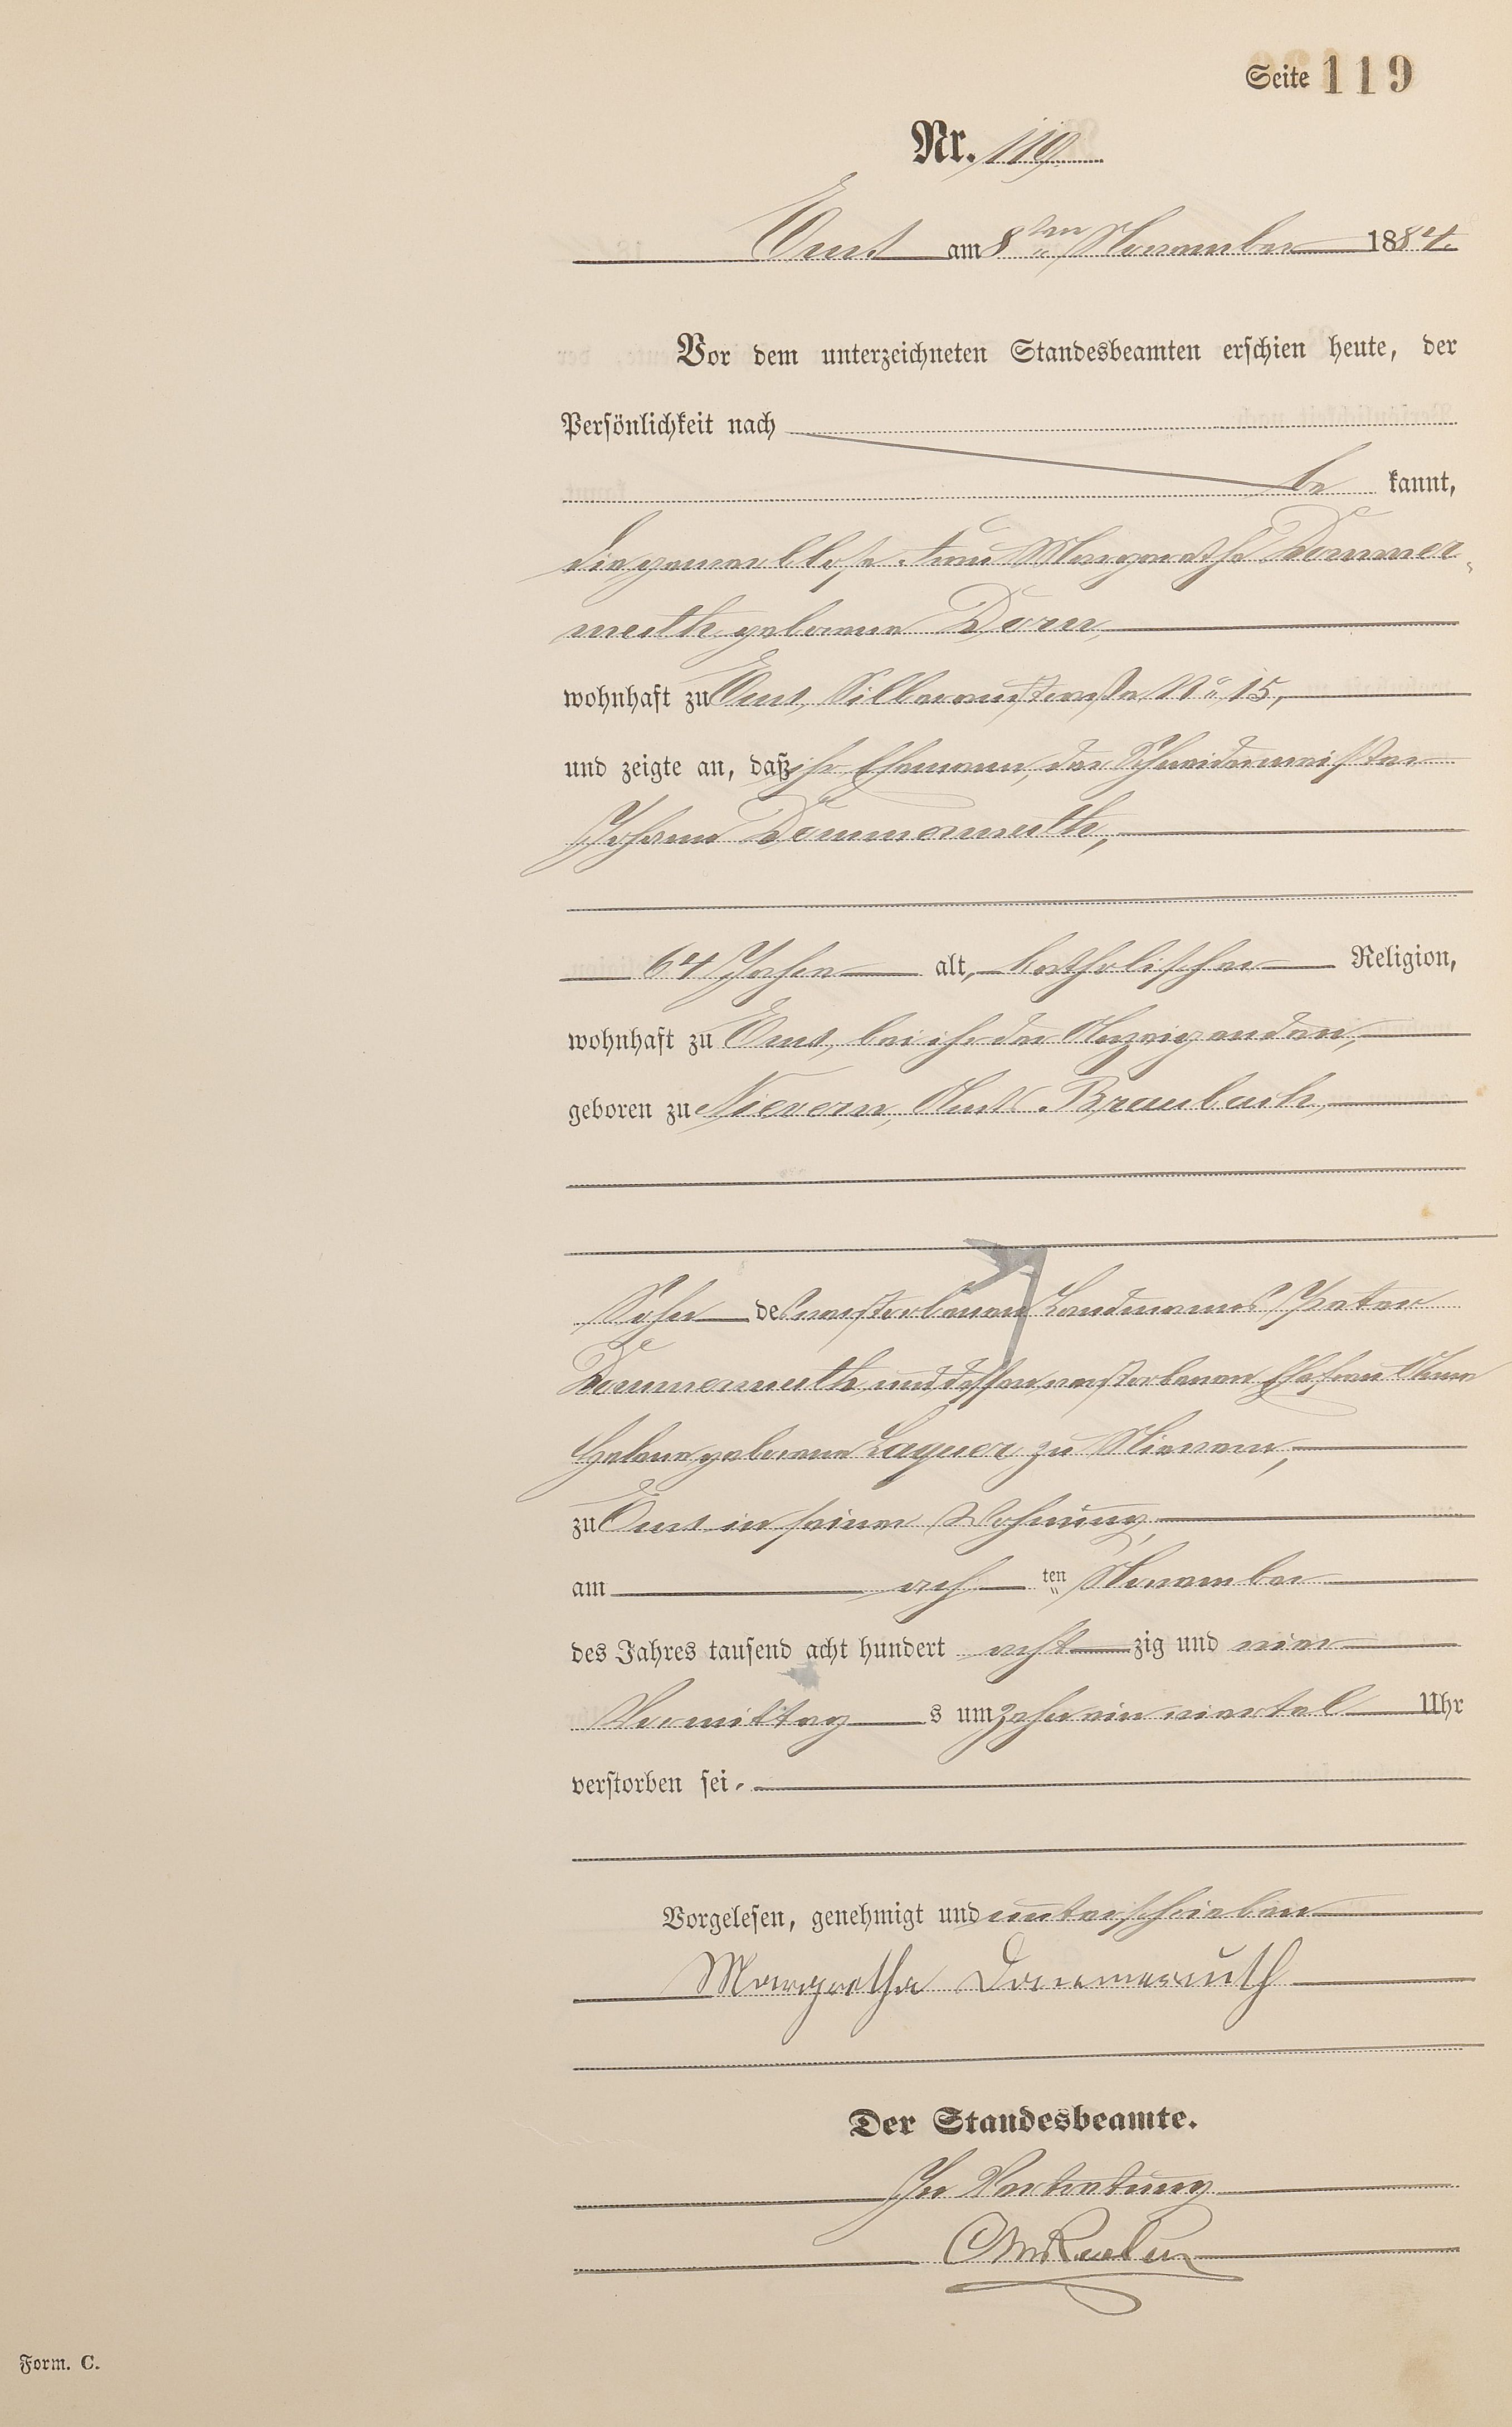 Seite 119
Nr. 119
Ems am 8ten November 1884.
Vor dem unterzeichneten Standesbeamten erschien heute, der
Persönlichkeit nach
be kannt,
die gewerblose Frau Margarethe Dommer-
muth geborene Dorn,
wohnhaft zu Ems, Silberaustraße No 15,
und zeigte an, daß ihr Ehemann, der Schneidermeister
Johann Dommermuth,
64 Jahre alt, katholischer Religion,
wohnhaft zu Ems, bei ihr der Anzeigenden,
geboren zu Nievern, Amts Braubach,
Sohn des verstorbenen Landmanns Peter
Dommermuth und dessen verstorbenen Ehefrau Anna
Helene geborene zu Nievern,
zu Ems in seiner Wohnung,
am ach ten November
des Jahres tausend acht hundert acht zig und vier
Vormittag s um zehn ein viertel Uhr
verstorben sei.
Vorgelesen, genehmigt und unterschrieben
Margretha Dommermuth
Der Standesbeamte.
In Vertretung
Form. C.